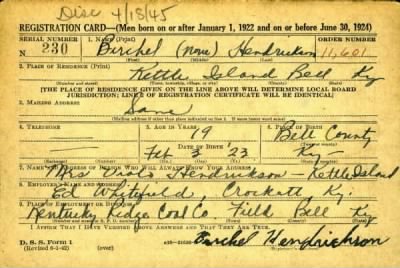 Disc 4/18/45
REGISTRATION CARD—(Men born on or after January 1, 1922 and on or before June 30, 1924)
SERIAL NUMBER 1. NAME (Print) ORDER NUMBER
230 Birchel (none) Hendrickson 11,601
2. PLACE OF RESIDENCE (Print)
Kettle Island Bell Ky
[THE PLACE OF RESIDENCE GIVEN ON THE LINE ABOVE WILL DETERMINE LOCAL BOARD
JURISDICTION; LINE 2 OF REGISTRATION CERTIFICATE WILL BE IDENTICAL]
3. MAILING ADDRESS
Same
4. TELEPHONE 5. AGE IN YEARS 6. PLACE OF BIRTH
19 Bell County
Feb 3 23 Ky
7. NAME AND ADDRESS OF PERSON WHO WILL ALWAYS KNOW YOUR ADDRESS
Mrs Hendrickson - Kettle Island
8. EMPLOYER'S NAME AND ADDRESS
Ed Whitefield Crockett Ky.
9. PLACE OF EMPLOYMENT OR BUSINESS
Kentucky Ridge Coal Co. Field Bell Ky
I AFFIRM THAT I HAVE VERIFIED ABOVE ANSWERS AND THAT THEY ARE TRUE.
D. S. S. Form 1 Birchel Hendrickson
(Revised 6-1-42)